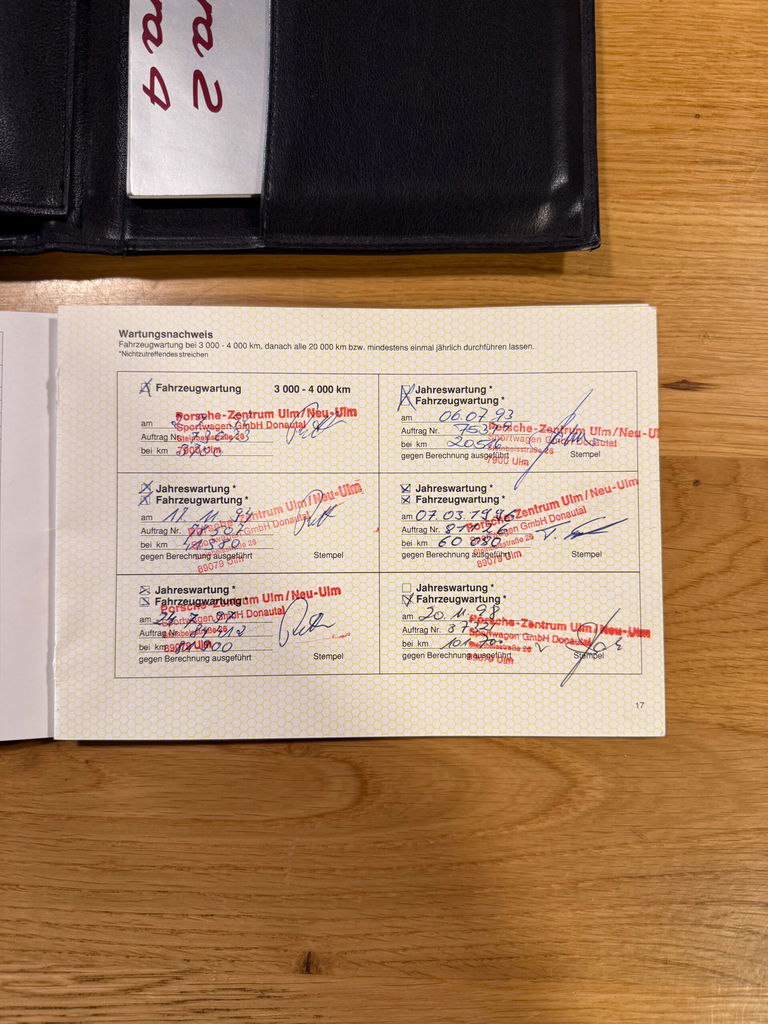 ra 2
ra 4
Wartungsnachweis
Fahrzeugwartung bei 3 000 - 4 000 km, danach alle 20 000 km bzw. mindestens einmal jährlich durchführen lassen.
*Nichtzutreffendes streichen
Fahrzeugwartung 3 000 - 4 000 km
am
Auftrag Nr.
bei km
Porsche-Zentrum Ulm/Neu-Ulm
Sportwagen GmbH Donautal
Steinbeisstraße 28
7900 Ulm
Jahreswartung *
Fahrzeugwartung *
am 06.07.93
Auftrag Nr.
bei km
gegen Berechnung ausgeführt
Stempel
Porsche-Zentrum Ulm/Neu-U
Sportwagen GmbH Donautal
Steinbeisstraße 28
7900 Ulm
Jahreswartung *
Fahrzeugwartung *
am 17. 11. 94
Auftrag Nr.
bei km 41380
gegen Berechnung ausgeführt
Stempel
Porsche-Zentrum Ulm/Neu-Ulm
Sportwagen GmbH Donautal
Steinbeisstraße 28
89079 Ulm
Jahreswartung *
Fahrzeugwartung *
am 07.03.1996
Auftrag Nr.
bei km 60 080
gegen Berechnung ausgeführt
Stempel
Porsche-Zentrum Ulm/Neu-Ulm
Sportwagen GmbH Donautal
Steinbeisstraße 28
89079 Ulm
Jahreswartung *
Fahrzeugwartung *
am
Auftrag Nr.
bei km
gegen Berechnung ausgeführt
Stempel
Porsche-Zentrum Ulm/Neu-Ulm
Sportwagen GmbH Donautal
Steinbeisstraße 28
89079 Ulm
Jahreswartung *
Fahrzeugwartung *
am 20.11.98
Auftrag Nr.
bei km
gegen Berechnung ausgeführt
Stempel
Porsche-Zentrum Ulm/Neu-Ulm
Sportwagen GmbH Donautal
Steinbeisstraße 28
89079 Ulm
17